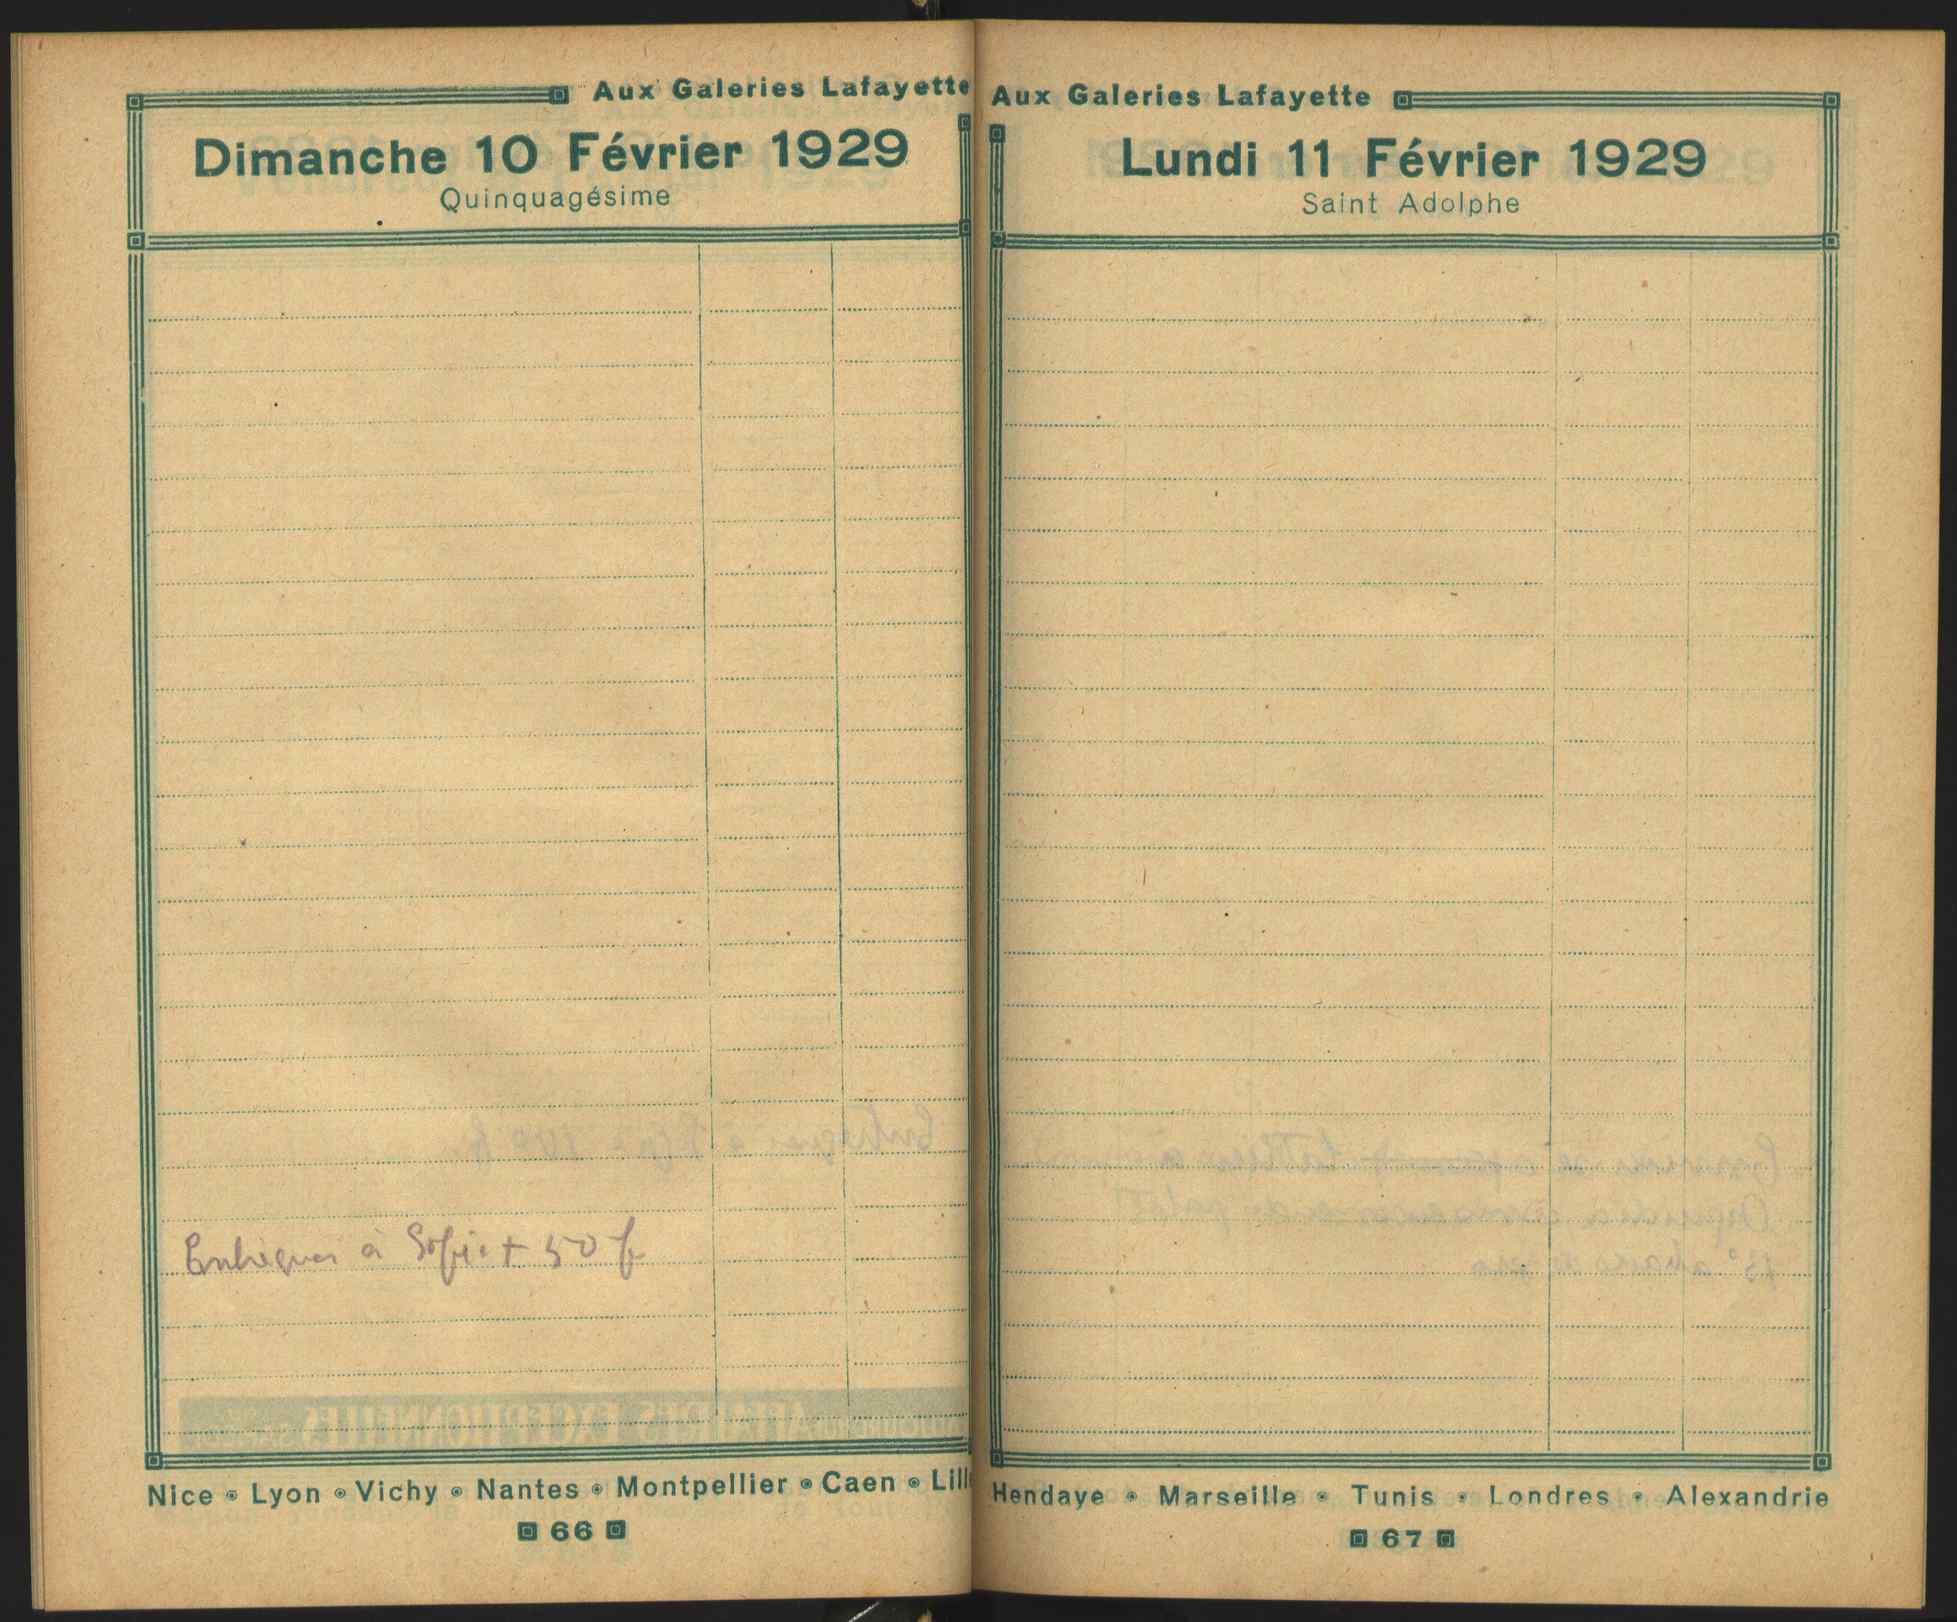 Aux Galeries Lafayette
Dimanche 10 Février 1929
Quinquagésime
à 50 fr
Nice Lyon Vichy Nantes Montpellier Caen
66
Aux Galeries Lafayette
Lundi 11 Février 1929
Saint Adolphe
Hendaye Marseille Tunis Londres Alexandrie
67